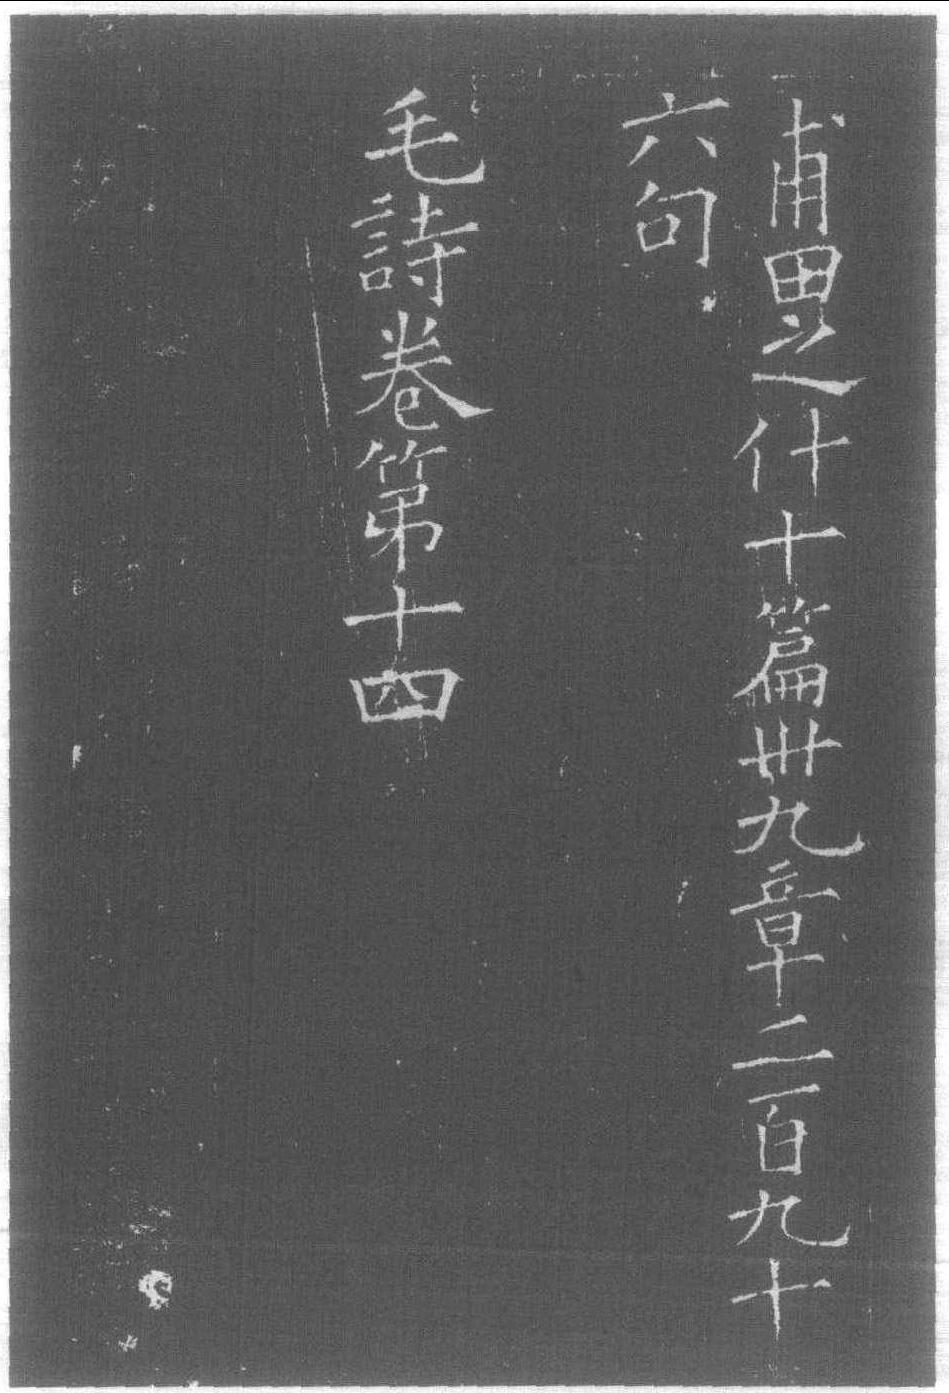 甫田之什十篇卌九章二百九十
六句
毛詩卷第十四